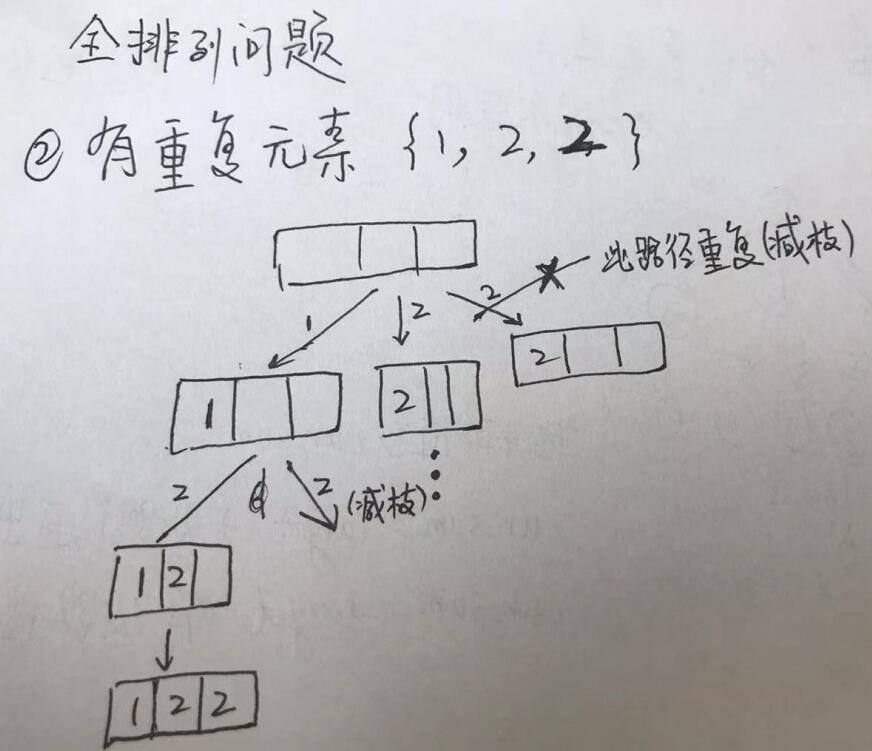 全排列问题
② 有重复元素 {1, 2, 2}
此路径重复(减枝)
1 2 2
1
2
2
2 2 (减枝)
1 2
1 2 2